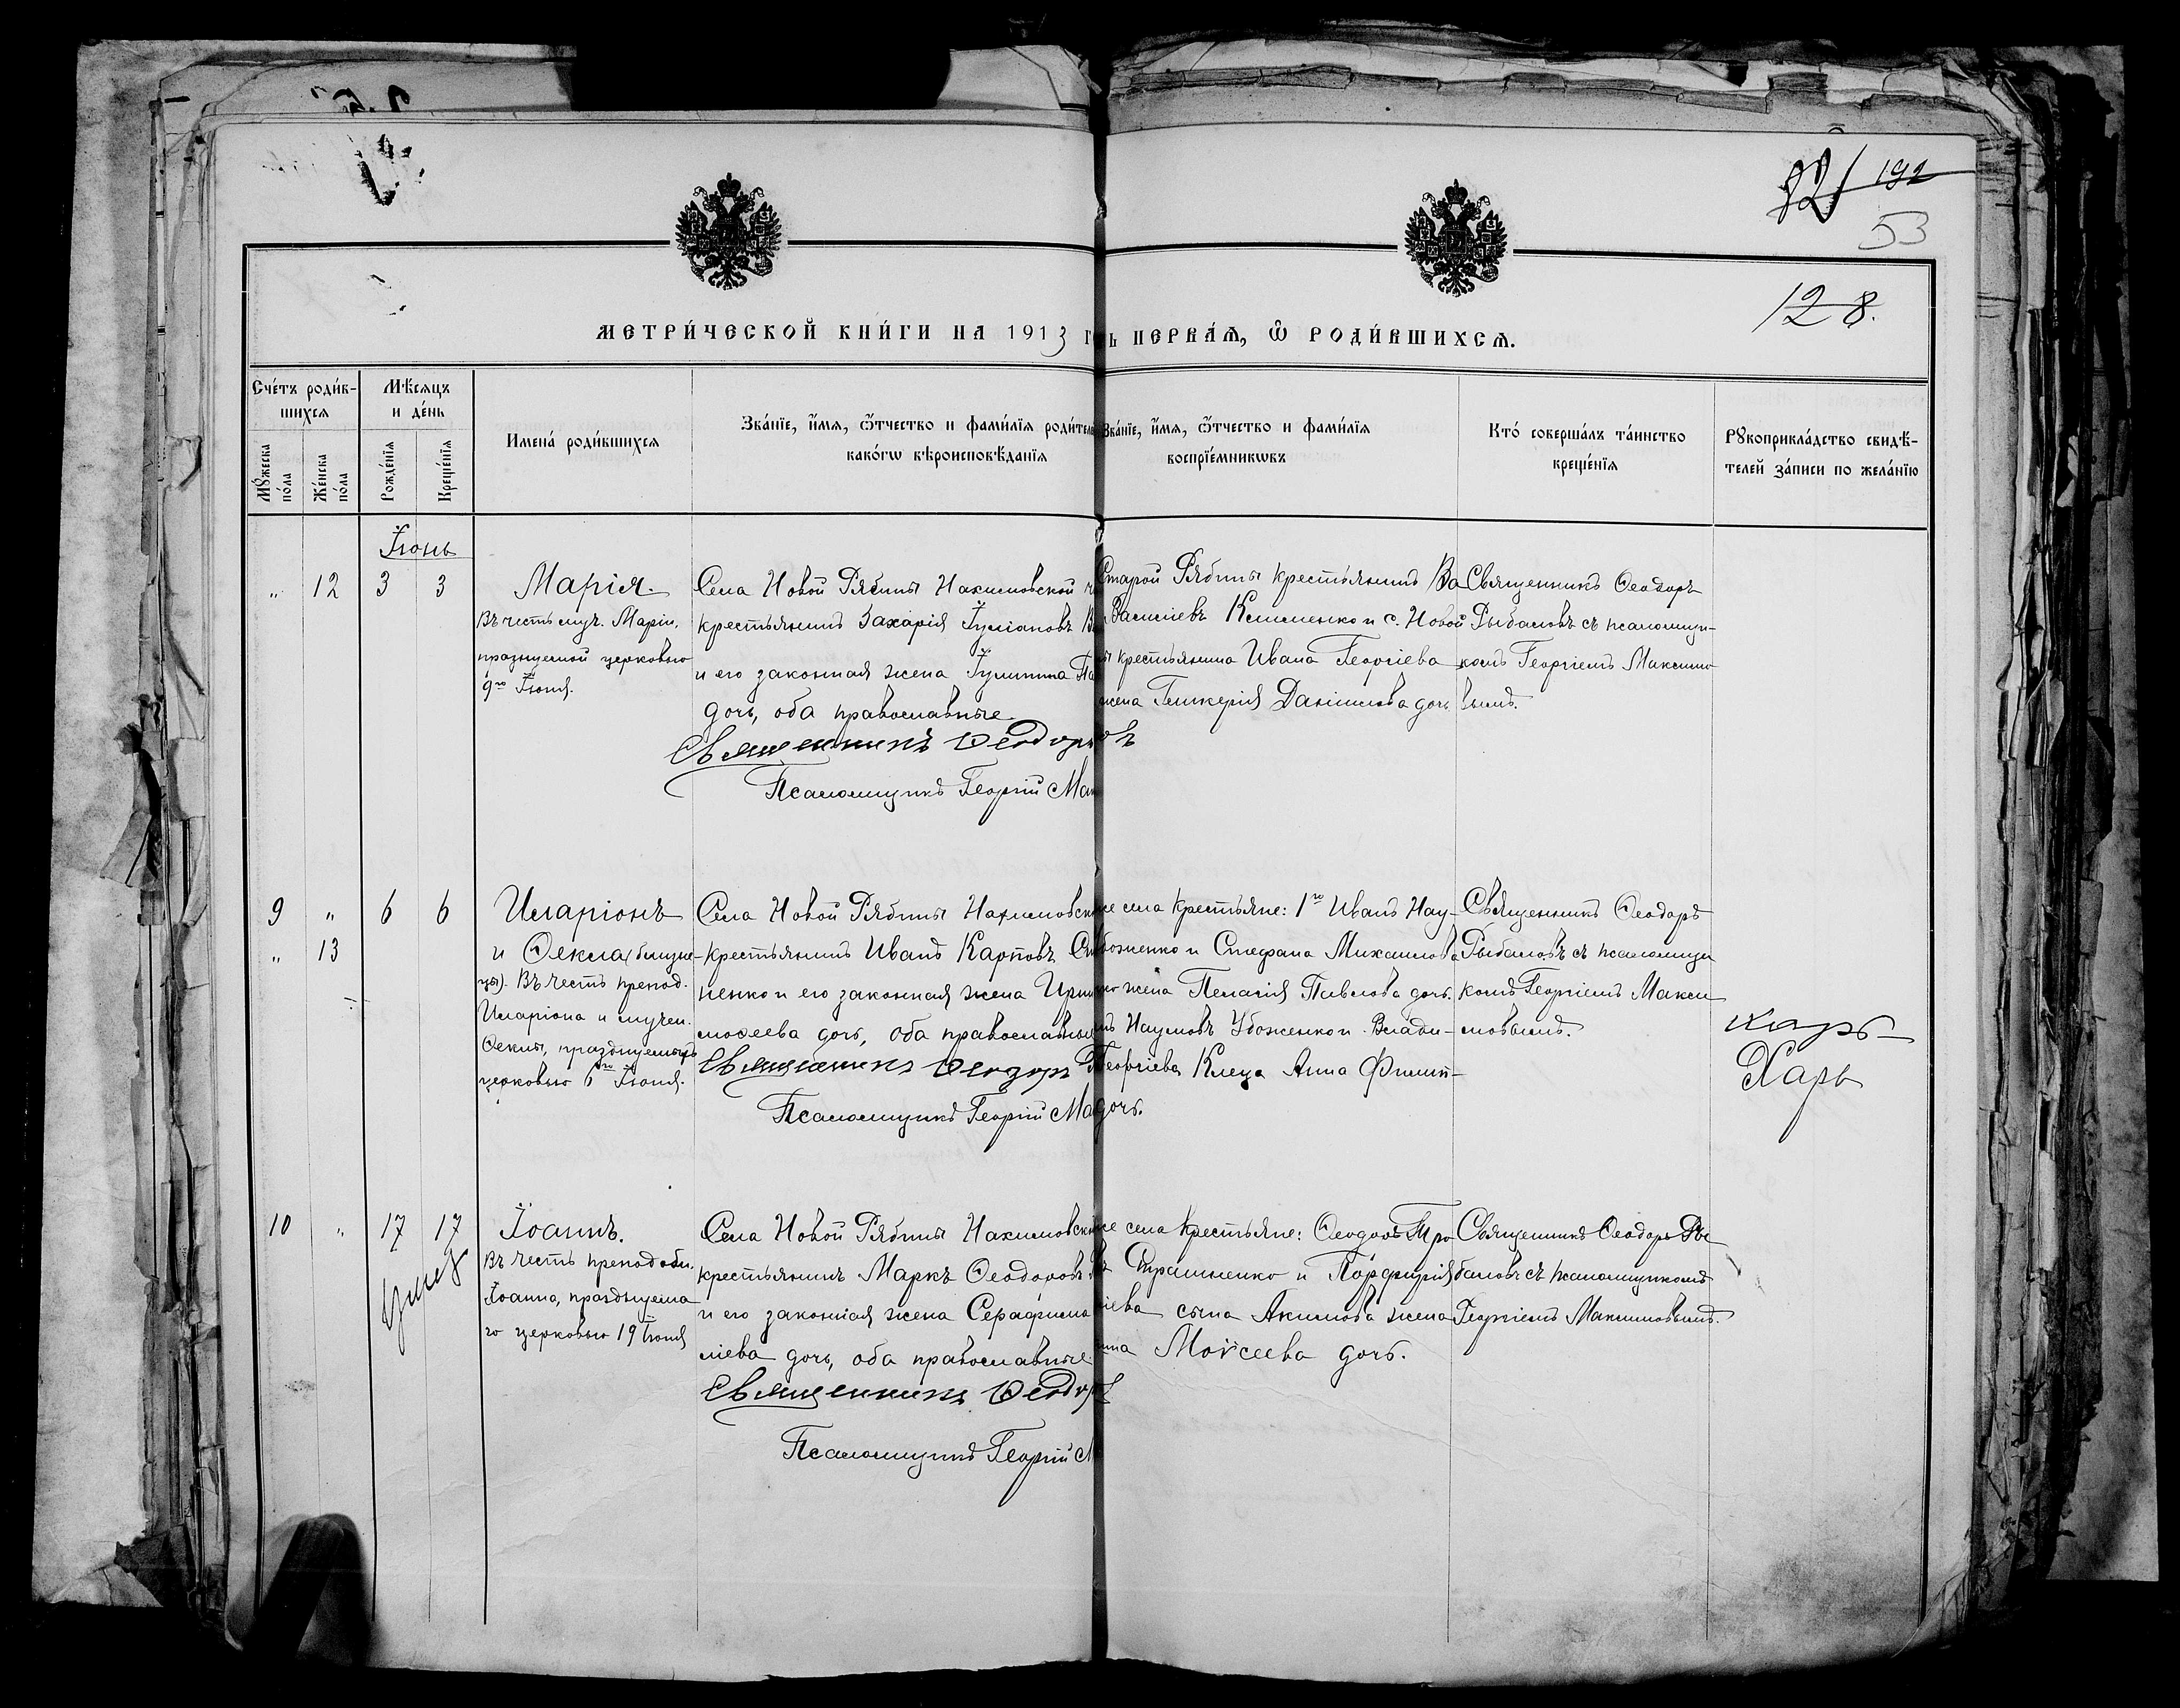 192
53
128.
МЕТРИ́ЧЕСКОЙ КНИ́ГИ НА 1913 ГО
Ъ ПЕРВА́Ѧ, Ѡ҆ РОДИ́ВШИХСѦ.
Сче́тъ роди́в-
шихсѧ
Мѣ́сѧцъ
и де́нь
Мꙋ́жеска
по́ла
Же́нска
по́ла
Рожде́нїѧ
Креще́нїѧ
Имена́ роди́вшихсѧ
Зва́нїе, и҆́мѧ, ѻ҆́тчество и фами́лїѧ роди́тел
како́гѡ вѣроисповѣ́данїѧ
Зва́нїе, и҆́мѧ, ѻ҆́тчество и фами́лїѧ
воспрїе́мникѡвъ
Кто́ соверша́лъ та́инство
креще́нїѧ
Рꙋкоприкла́дство свидѣ́-
телей за́писи по жела́нїю
Іюнь
" 12 3 3
Марія.
Въ честь муч. Маріи,
празднуемой церковью
9го Іюня.
Села Новой Рябины Нахимовской
крестьянинъ Захарія Іуліановъ
и его законная жена Іулитта
дочь, оба православные.
Священникъ Ѳеодоръ
Псаломщикъ Георгій Мак
Старой Рябины крестьянинъ Ва
Васильевъ Клименко и с. Новой
крестьянина Ивана Георгіева
жена Гликерія Даніилова дочь
Священникъ Ѳеодоръ
Рыбаловъ съ псаломщи-
комъ Георгіемъ Максимо
вымъ.
9 " 6 6
" 13
Иларіонъ
и Ѳекла (близне-
цы). Въ честь препод.
Иларіона и мучен.
Ѳеклы, празднуемыхъ
церковью 6го Іюня.
Села Новой Рябины Нахимовск
крестьянинъ Иванъ Карповъ
ненко и его законная жена Ири
моѳеева дочь, оба православные
Священникъ Ѳеодоръ
Псаломщикъ Георгій Ма
же села крестьяне: 1го Иванъ Нау-
боженко и Стефана Михаилова
жена Пелагія Павлова дочь.
Наумовъ Убоженко и Влади-
Георгіева Клеца Анна Филип-
дочь.
Священникъ Ѳеодоръ
Рыбаловъ съ псаломщи
комъ Георгіемъ Макси
мовымъ.
Харь
10 " 17 17
Іоаннъ.
Въ честь преподобн.
Іоанна, празднуема
го церковью 19 Іюня
Села Новой Рябины Нахимовск
крестьянинъ Маркъ Ѳеодоровъ
и его законная жена Серафима
ліева дочь, оба православные.
Священникъ Ѳеодоръ
Псаломщикъ Георгій М
же села крестьяне: Ѳеодоръ Тро
и Порфирія
іева сына Акимова жена
Моѵсеева дочь.
Священникъ Ѳеодоръ Ры
баловъ съ псаломщикомъ
Георгіемъ Максимовымъ.